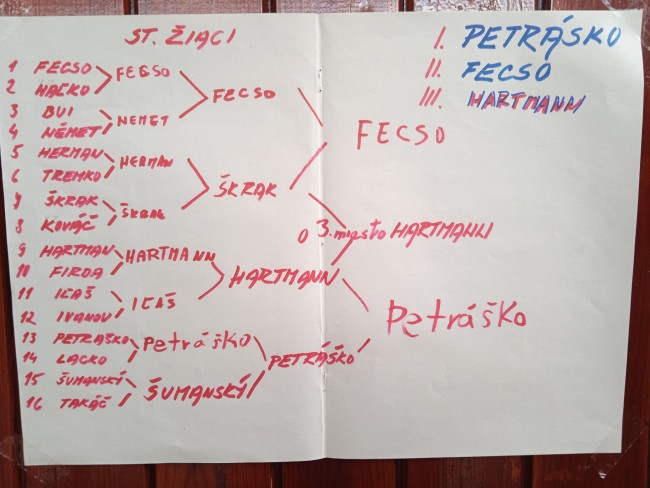 ST. ŽIACI
I. PETRÁSKO
II. FECSO
III. HARTMANN
1 FECSO
2 HAĽKO
3 BUI
4 NÉMET
5 HERMAN
6 TREMKO
7 ŠKRAK
8 KOVÁČ
9 HARTMAN
10 FIRDA
11 IĽAŠ
12 IVANOV
13 PETRAŠKO
14 LACKO
15 ŠUMANSKÝ
16 TAKÁČ
FECSO
NEMET
HERMAN
ŠKRAK
HARTMANN
IĽAŠ
Petráško
ŠUMANSKÝ
FECSO
ŠKRAK
HARTMANN
PETRÁŠKO
FECSO
O 3. miesto HARTMANN
Petráško